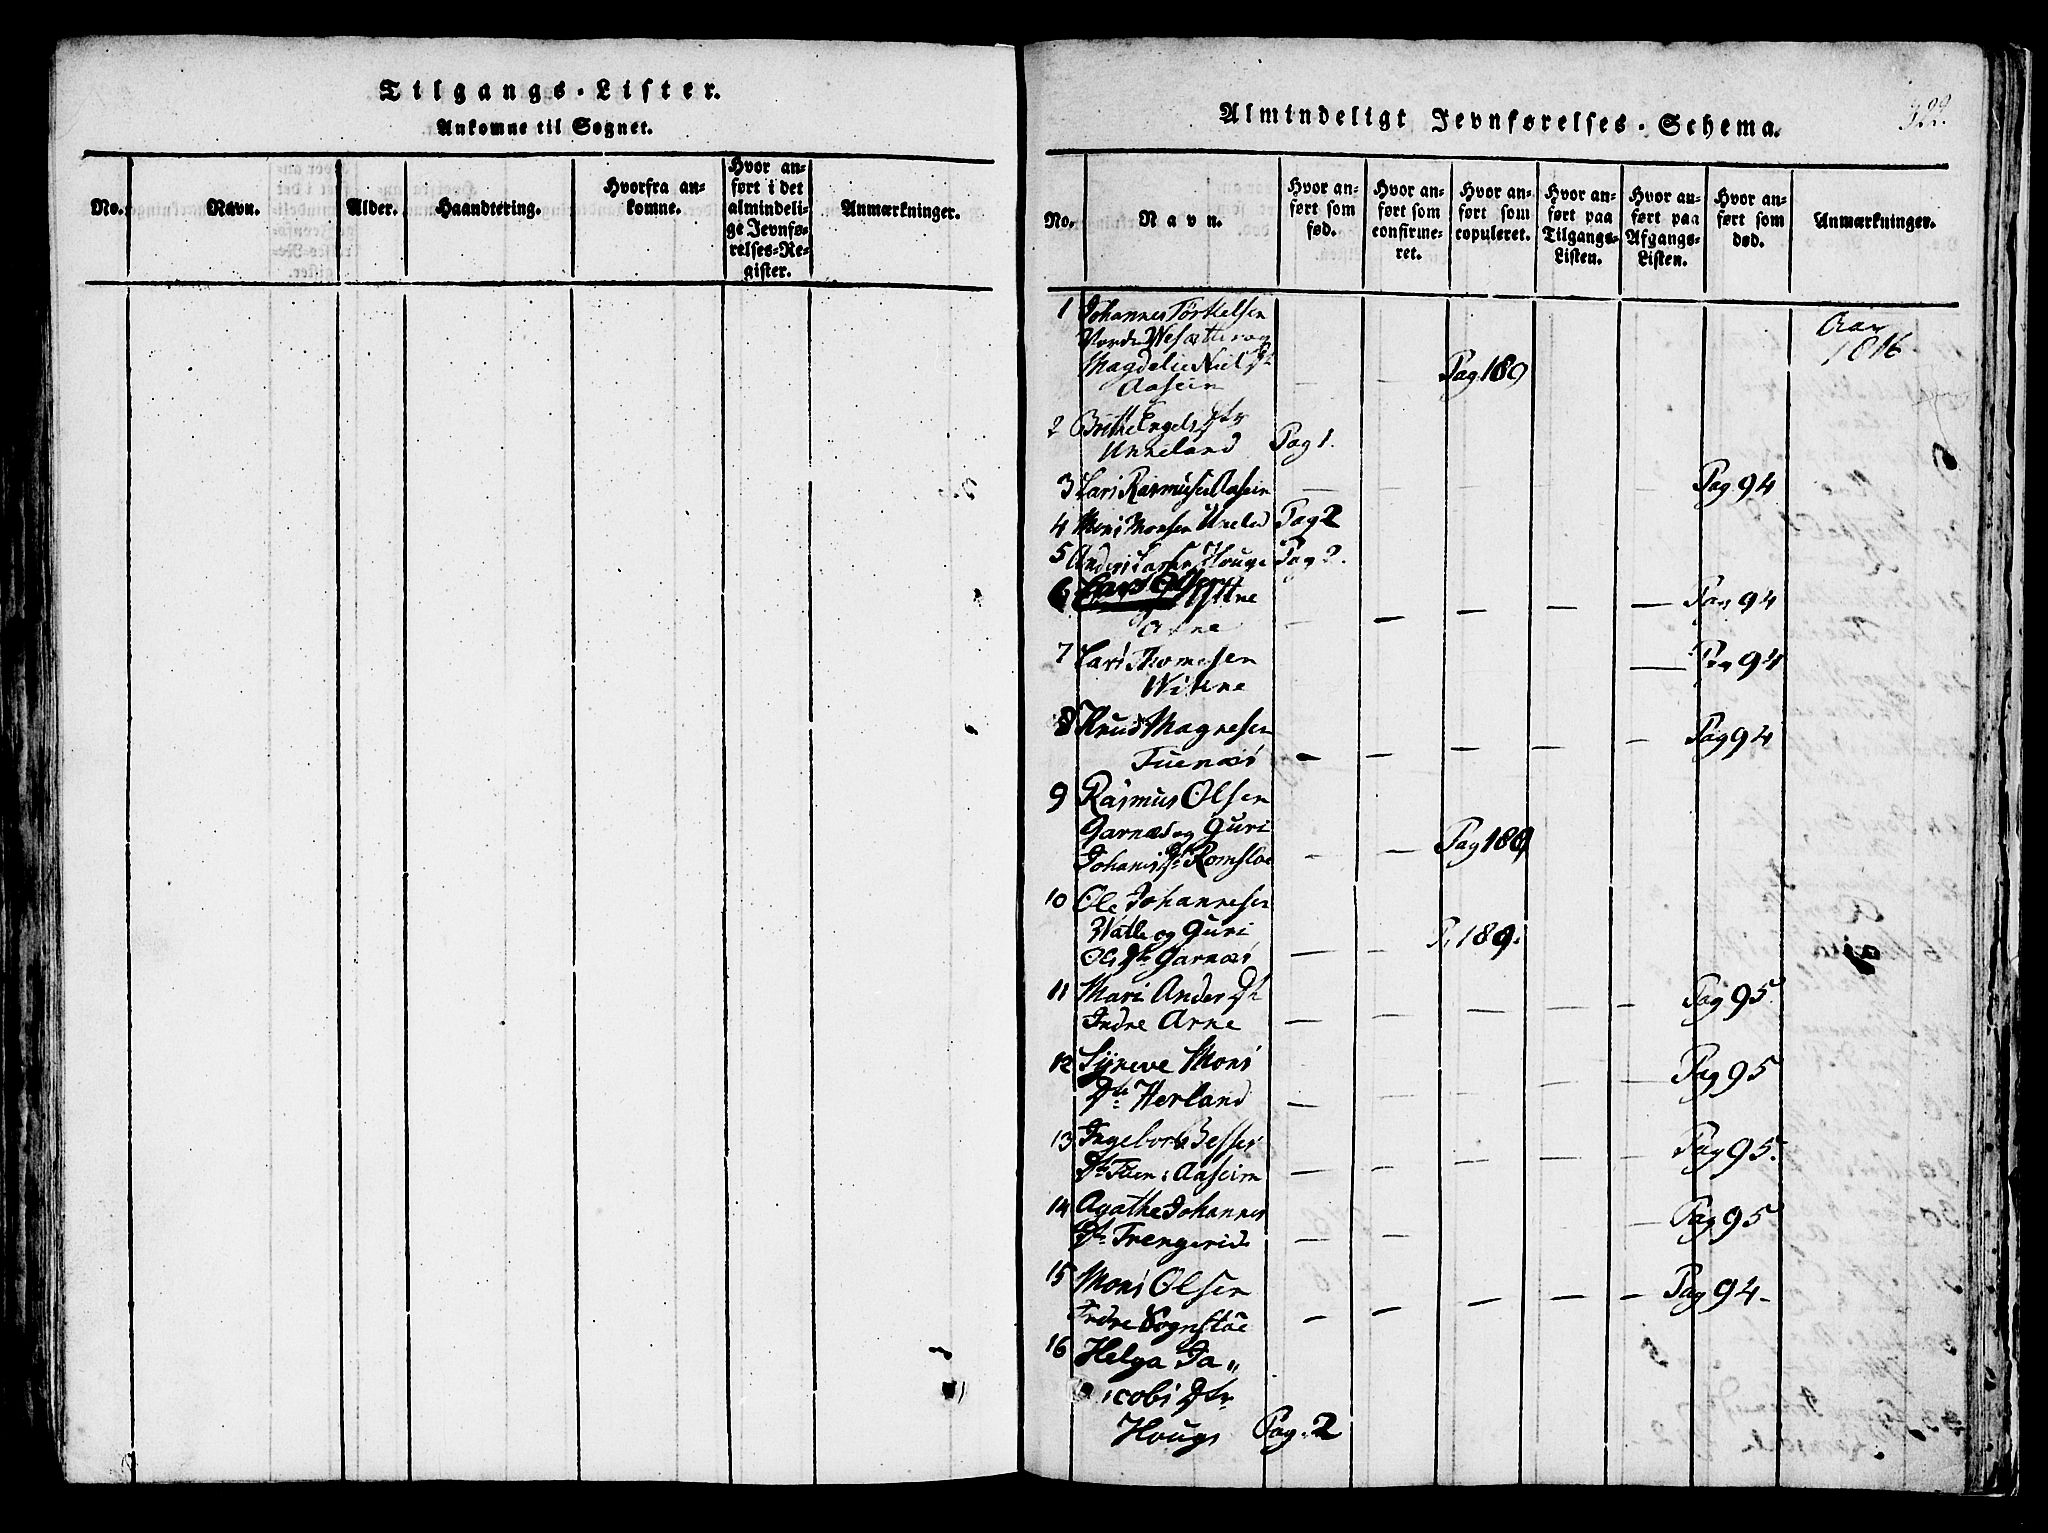 Tilgangs-Lister.
Ankomne til Sognet.
No.
Navn.
Alder.
Haandtering.
Hvorfra an-
komne.
Hvor an-
ført i det
almindeli-
ge Jevnfø-
relses-Re-
gister.
Anmærkninger.
Almindeligt Jevnførelses-Schema.
No.
Navn.
Hvor an-
ført som
fød.
Hvor an-
ført som
confirme-
ret.
Hvor an-
ført som
copuleret.
Hvor an-
ført paa
Tilgangs-
Listen.
Hvor an-
ført paa
Afgangs-
Listen.
Hvor an-
ført som
død.
Anmærkninger.
1 Johannes Törkelsen
og
Magdelie Niels Dtr
Aaseim Pag 189
Aar
1816
2 Engels Dtr
Unneland Pag 1.
3 Lars Rasmusen Aaseim Pag 94
4 Mons Monsen Pag 2
5 Anders Larsen Houge Pag 2.
6 Lars
Ytre
Arne Pag 94
7 Lars Thomesen
Wikne Pag 94
8 Knud Magnesen
Tuenæs Pag 94
9 Rasmus Olsen
Garnæs og Guri
Johanis Dtr Romsloe Pag 189
10 Ole Johannesen
Watle og Guri
Ols Dtr Garnæs P. 189.
11 Mari Anders Dtr
Indre Arne Pag 95.
12 Syneve Mons
Dtr Herland Pag 95
13 Ingebor
Dtr Aaseim Pag 95.
14 Agathe Johannes
Dtr Frengerids Pag 95
15 Mons Olsen
Indre Sognstøe Pag 94
16 Helga Ja„
cobs Dtr
Houg Pag. 2